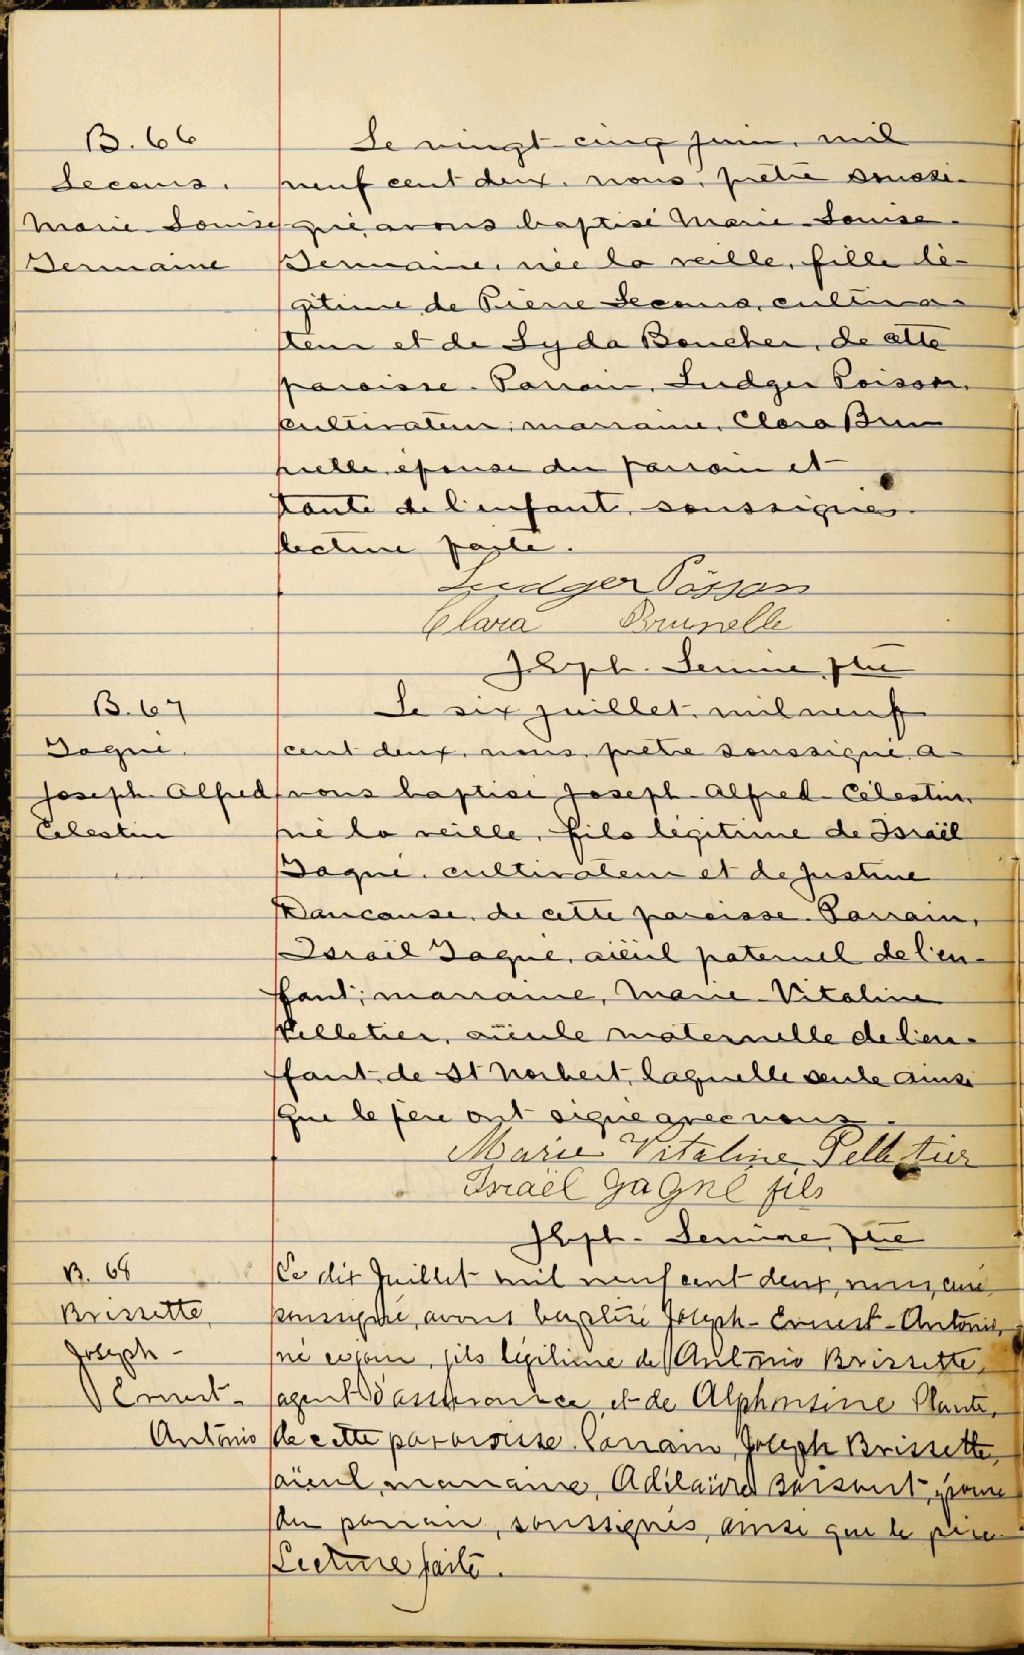 B. 66
Secours.
Marie-Louise
Germaine
Le vingt-cinq juin, mil
neuf cent deux, nous, prêtre soussi-
gné, avons baptisé Marie-Louise-
Germaine, née la veille, fille lé-
gitime de Pierre Secours, cultiva-
teur et de Lyda Boucher, de cette
paroisse. Parrain, Ludger Poisson,
cultivateur; marraine, Clara Bru
nelle, épouse du parrain et
tante de l'enfant, soussignés.
Lecture faite.
Ludger Poisson
Clara Brunelle
Jseph. Ptre
B. 67
Gagné.
Joseph-Alfred
Célestin
Le six juillet, mil neuf
cent deux, nous, prêtre soussigné, a-
vons baptisé Joseph-Alfred-Célestin,
né la veille, fils légitime de Israël
Gagné, cultivateur et de Justine
Dancause, de cette paroisse. Parrain,
Israël Gagné, aïeul paternel de l'en-
fant; marraine, Marie-Vitaline
Pelletier, aïeule maternelle de l'en-
fant, de St Norbert, laquelle seule ainsi
que le père ont signé avec nous.
Marie Vitaline Pelletier
Israël Gagné fils
Jseph. Ptre
B. 68
Brissette,
Joseph-
Ernest-
Antonio
Le dix Juillet mil neuf cent deux, nous, curé
soussigné, avons baptisé Joseph-Ernest-Antonio,
né ce jour, fils légitime de Antonio Brissette,
agent d'assurance, et de Alphonsine Plante,
de cette paroisse. Parrain, Joseph Brissette,
aïeul, marraine, Adélaïde épouse
du parrain, soussignés, ainsi que le père.
Lecture faite.